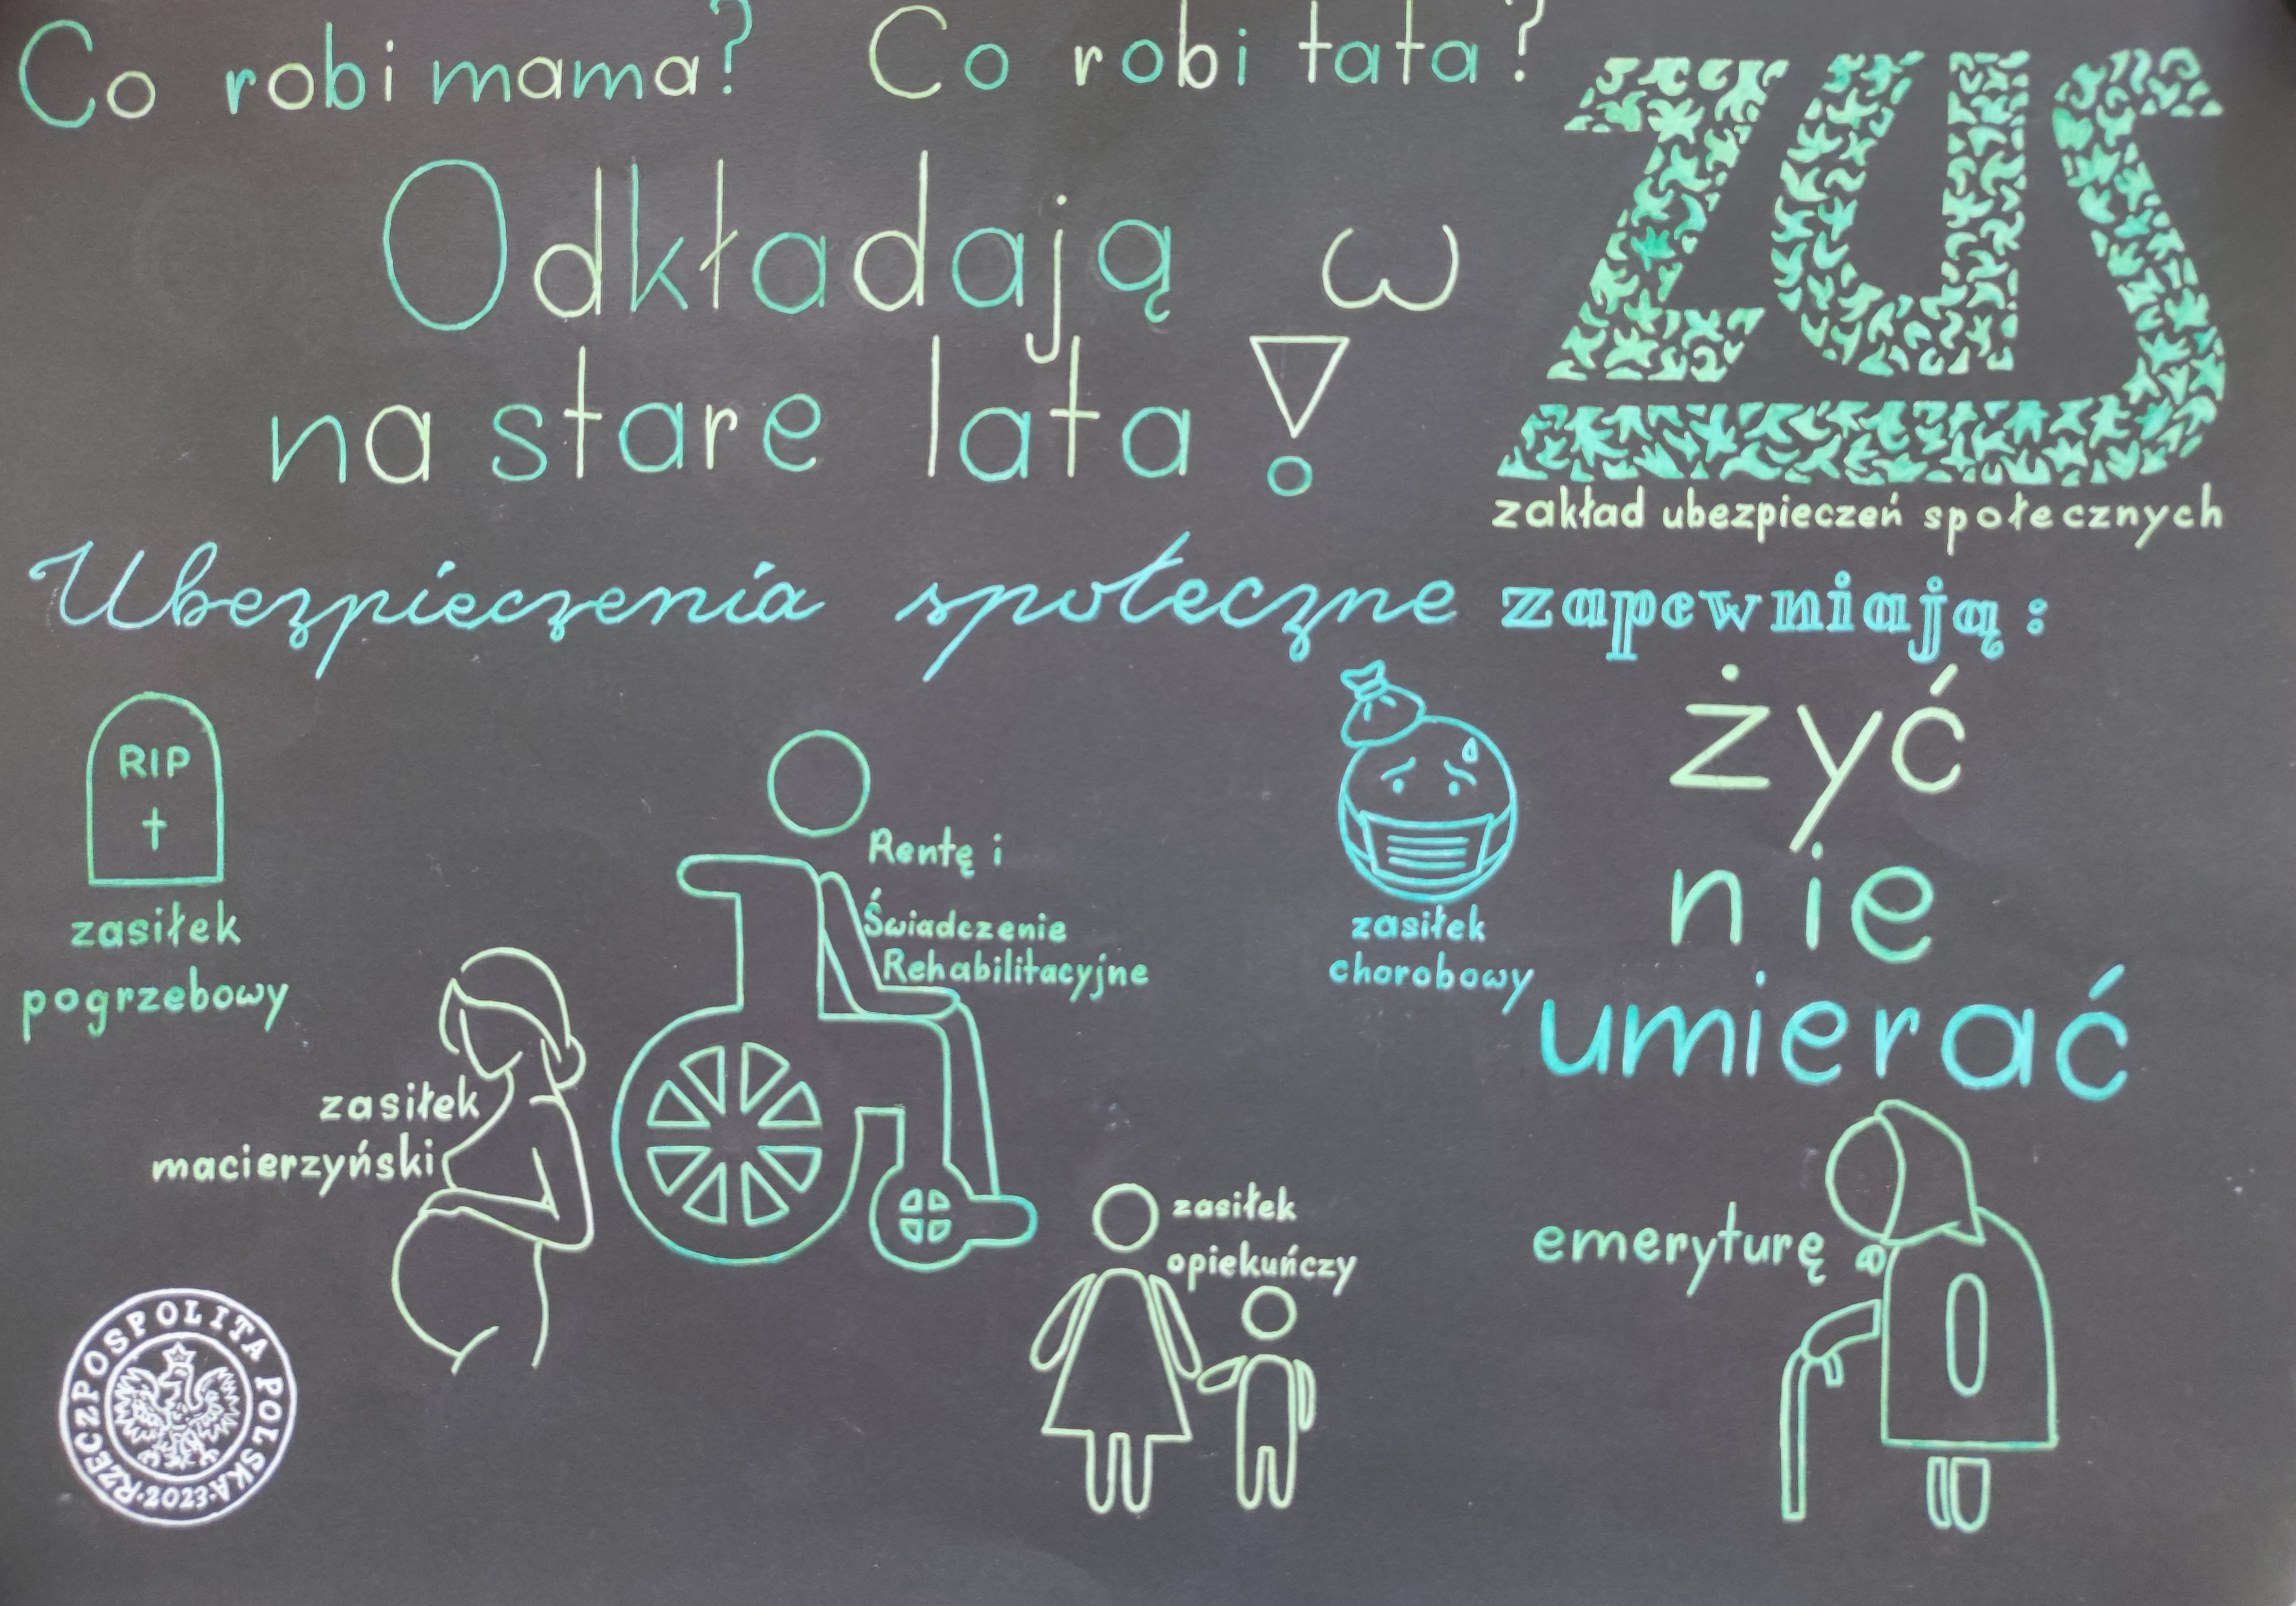 Co robi mama? Co robi tata?
Odkładają w ZUS
na stare lata!
zakład ubezpieczeń społecznych
Ubezpieczenia społeczne zapewniają:
żyć
nie
umierać
RIP
zasiłek
pogrzebowy
zasiłek
macierzyński
Rentę i
Świadczenie
Rehabilitacyjne
zasiłek
chorobowy
zasiłek
opiekuńczy
emeryturę
RZECZPOSPOLITA POLSKA
·2023·